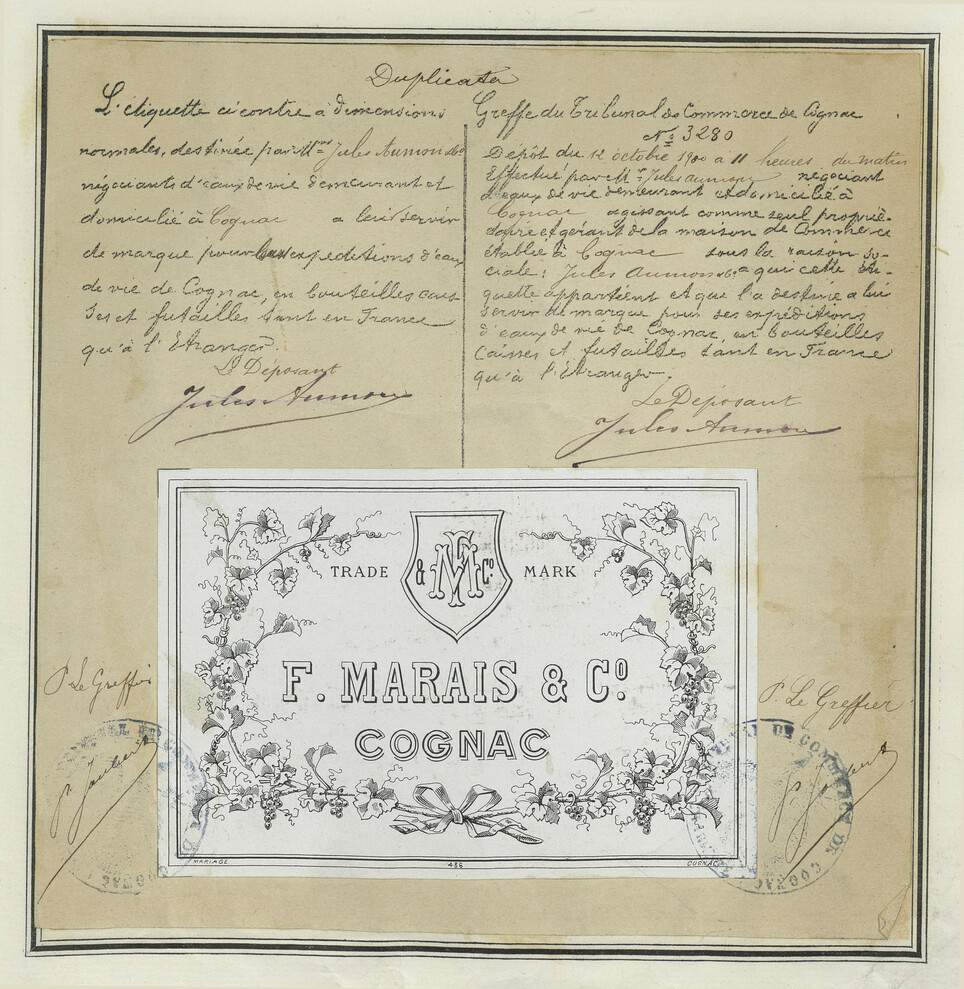 Duplicata
L'étiquette ci contre à dimensions
normales, destinée par Mrs Jules Aumon & Co
négociants d'eaux de vie demeurant et
domicilié à Cognac a leur servir
de marque pour expeditions d'eau
de vie de Cognac, en bouteilles cais-
ses et futailles tant en France
qu'à l'Etranger.
Le Déposant
Jules Aumon
Greffe du Tribunal de Commerce de Cognac
No 3280
Dépôt du 12 octobre 1900 à 11 heures du matin
Effectué par Mr Jules Aumon négociant
d'eaux de vie demeurant et domicilié à
Cognac agissant comme seul proprié-
taire et gérant de la maison de Commerce
établie à Cognac sous la raison so-
ciale: Jules Aumon & Co a qui cette éti-
quette appartient et que l'a destine a lui
servir de marque pour ses expéditions
d'eaux de vie de Cognac, en bouteilles
Caisses et futailles tant en France
qu'à l'Etranger.
Le Déposant
Jules Aumon
TRADE MARK
F M & Co
F. MARAIS & Co.
COGNAC
MARIAGE 486 COGNAC
P. Le Greffier
P. Le Greffier
TRIBUNAL DE COMMERCE DE COGNAC